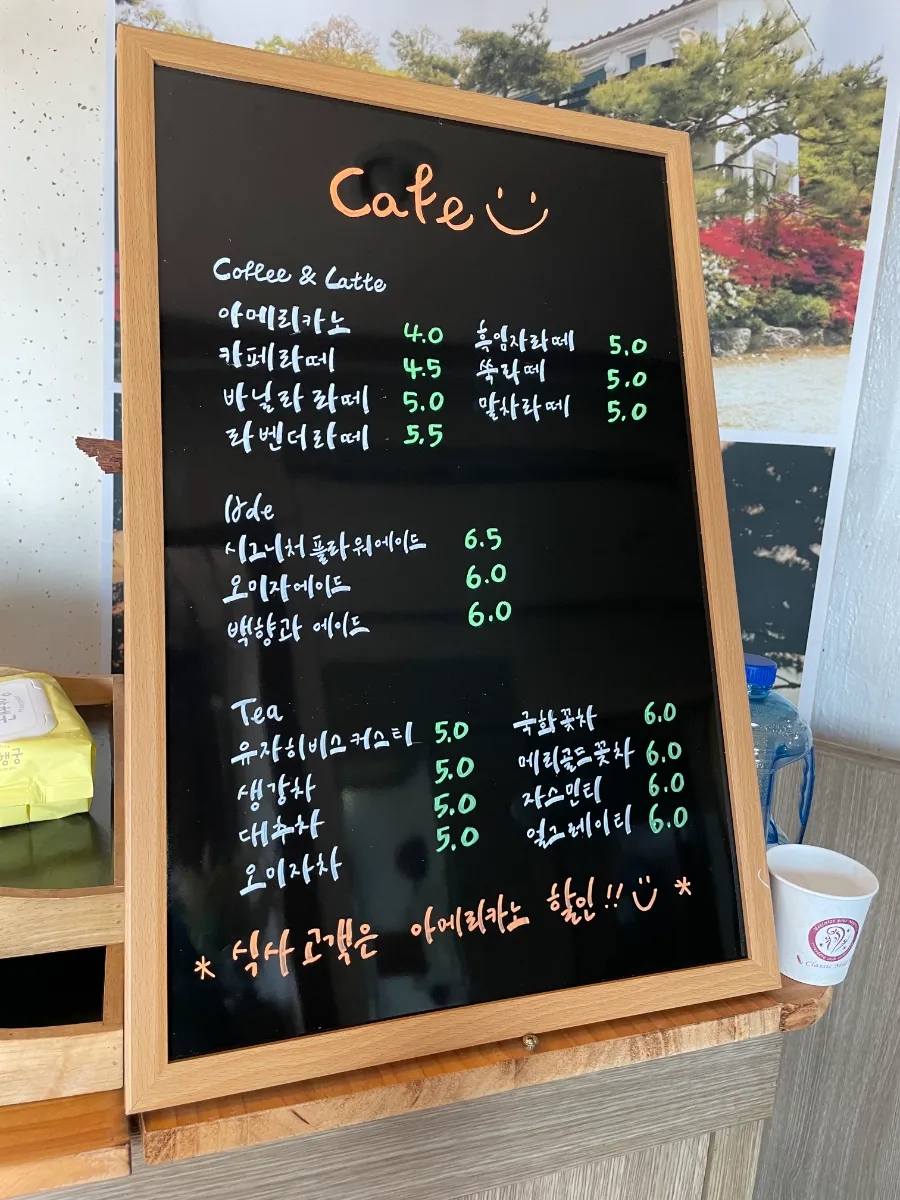 Cafe
Coffee & Latte
아메리카노 4.0
카페라떼 4.5
바닐라 라떼 5.0
라벤더라떼 5.5
흑임자라떼 5.0
쑥라떼 5.0
말차라떼 5.0
Ade
시그니처 플라워에이드 6.5
오미자에이드 6.0
백향과 에이드 6.0
Tea
유자히비스커스티 5.0
생강차 5.0
대추차 5.0
오미자차 5.0
국화꽃차 6.0
메리골드꽃차 6.0
자스민티 6.0
얼그레이티 6.0
* 식사고객은 아메리카노 할인!! *